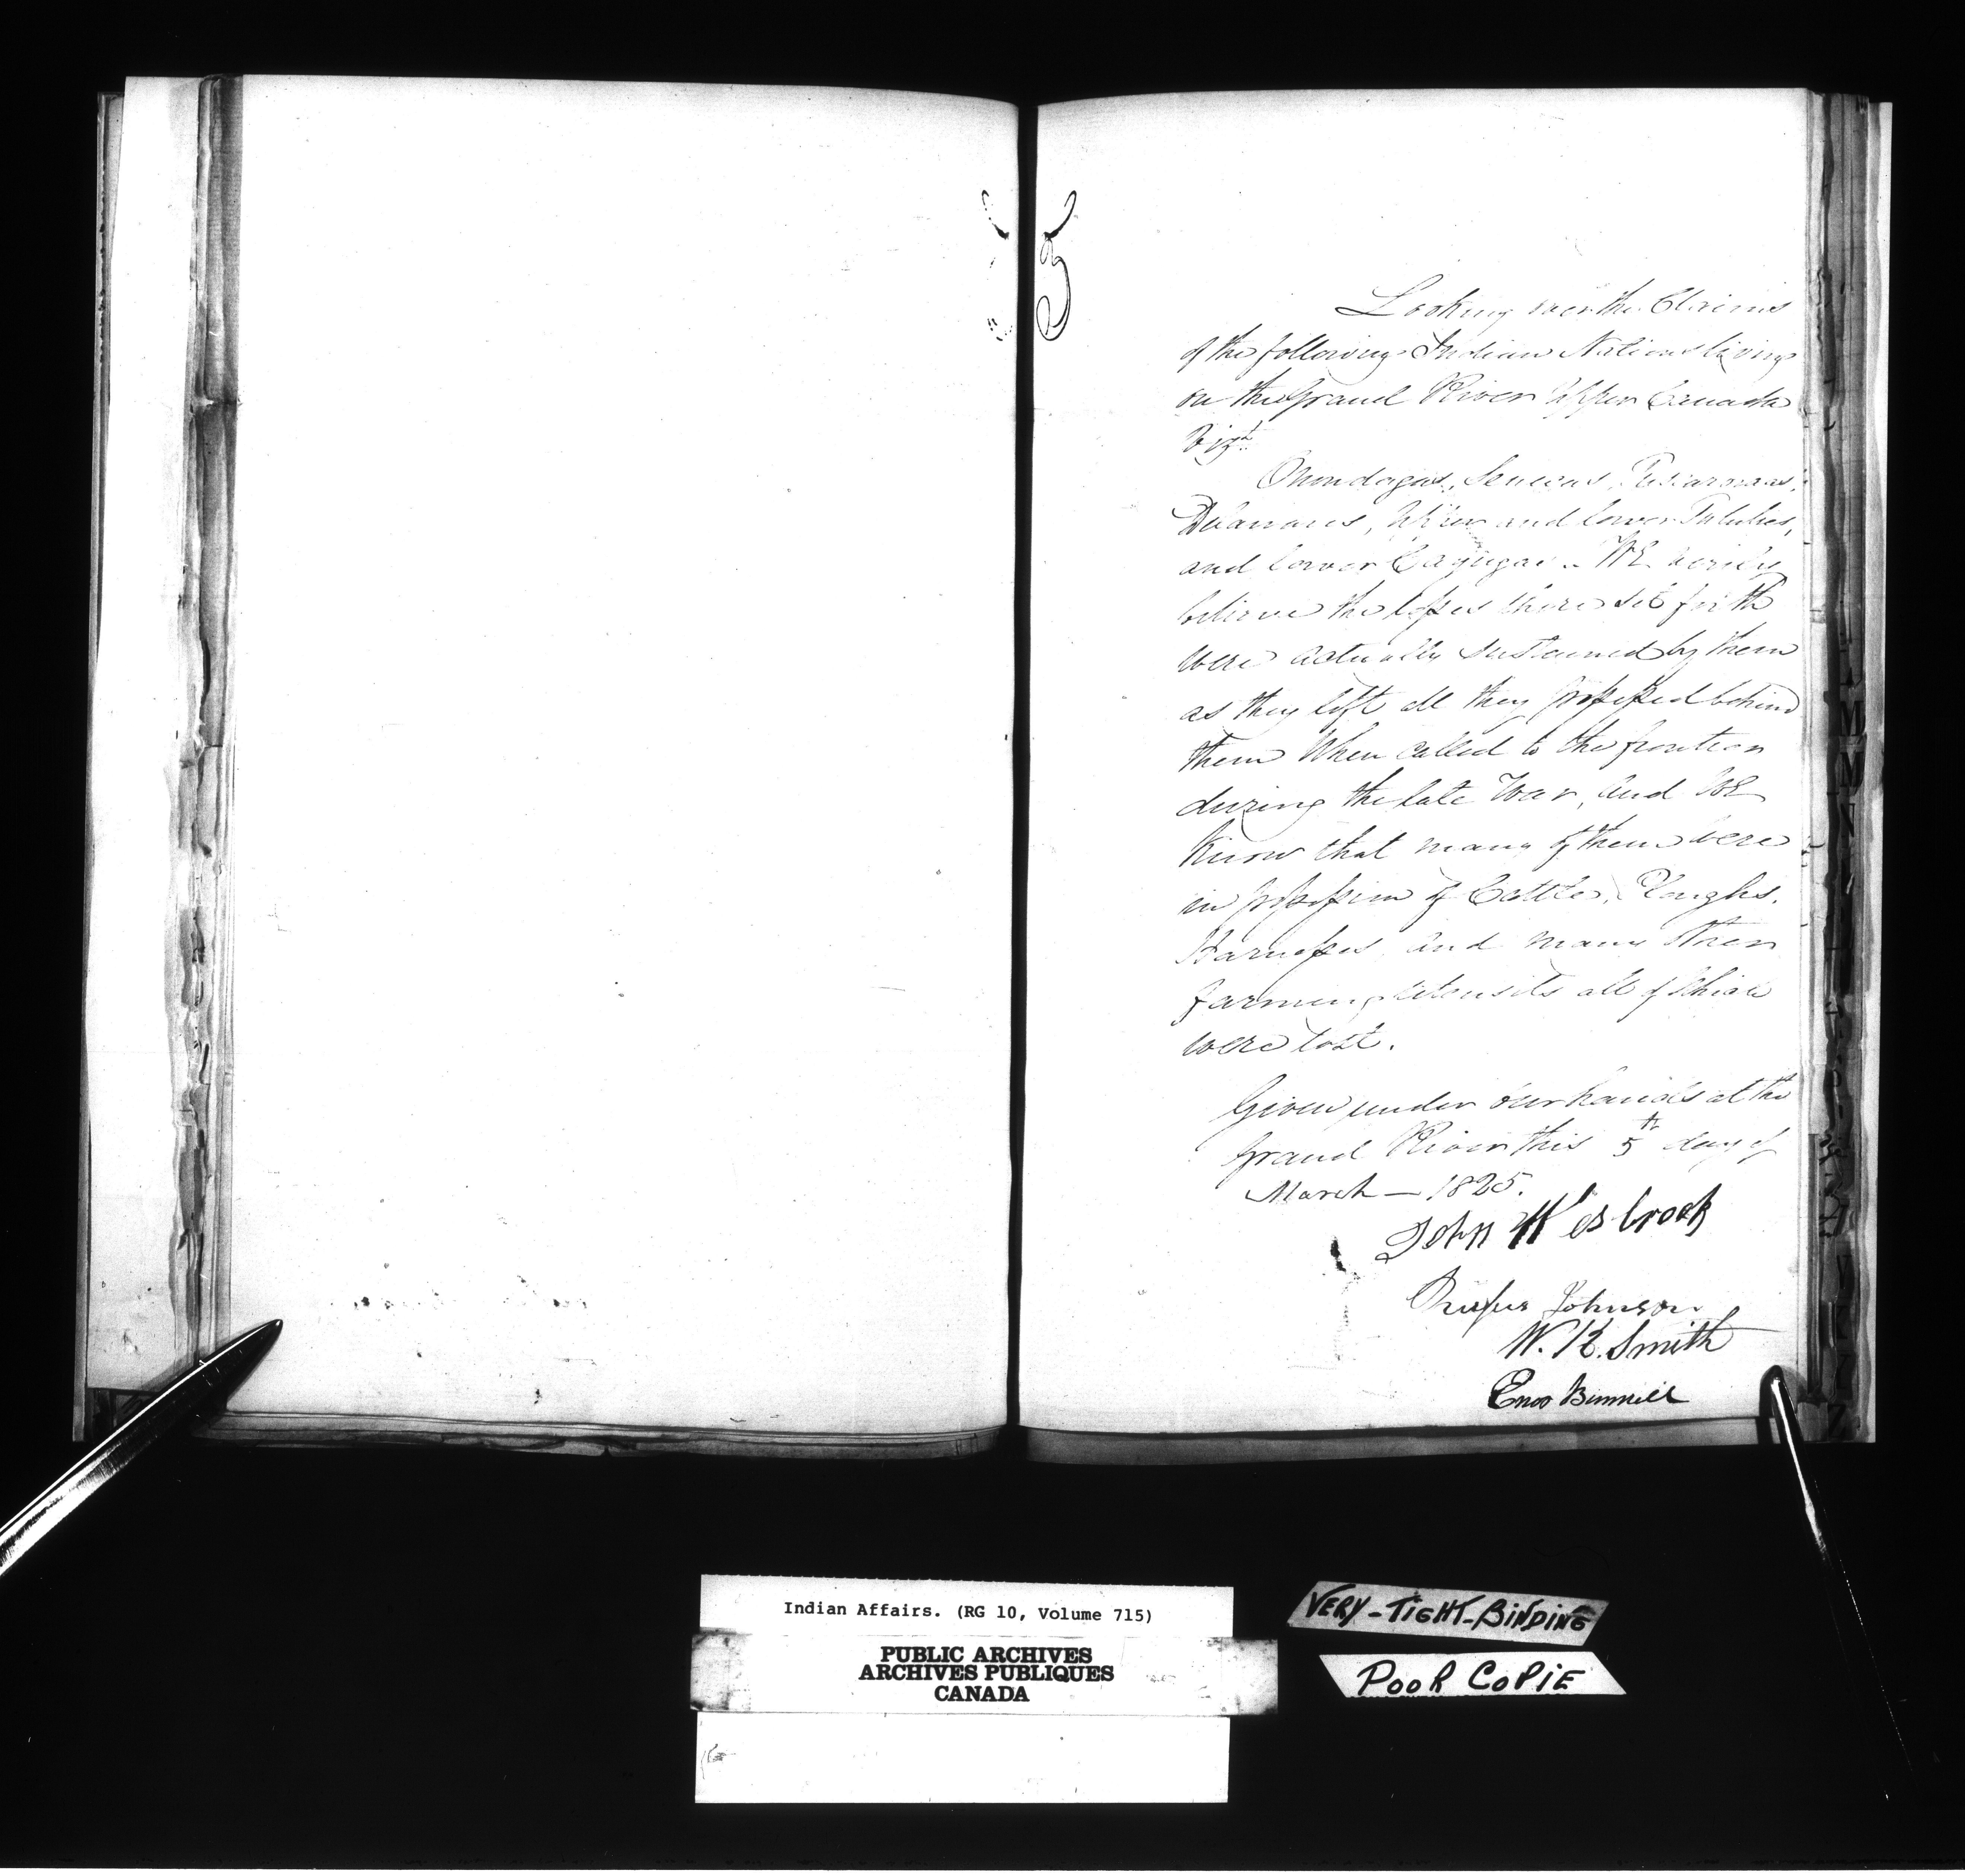 Looking over the Claims
of the following Indian Nations living
on the Grand River Upper Canada
Vizt
Onondagas, Senecas, Tuscaroras,
Delawares, Upper and lower Tutulies,
and lower Cayugas. WE verily
believe the losses there set forth
were actually sustained by them
as they left all they possessed behind
them When called to the frontier
during the late War, and WE
Know that many of them were
in possession of Cattle, Ploughs,
Harnesses and many other
farming utensils all of which
were lost.
Given under our hands at the
Grand River this 5th day of
March — 1825.
John Wesbrook
Rufus Johnson
W. K. Smith
Enos Bunnell
Indian Affairs. (RG 10, Volume 715)
PUBLIC ARCHIVES
ARCHIVES PUBLIQUES
CANADA
VERY-TIGHT-BINDING
POOR COPIE